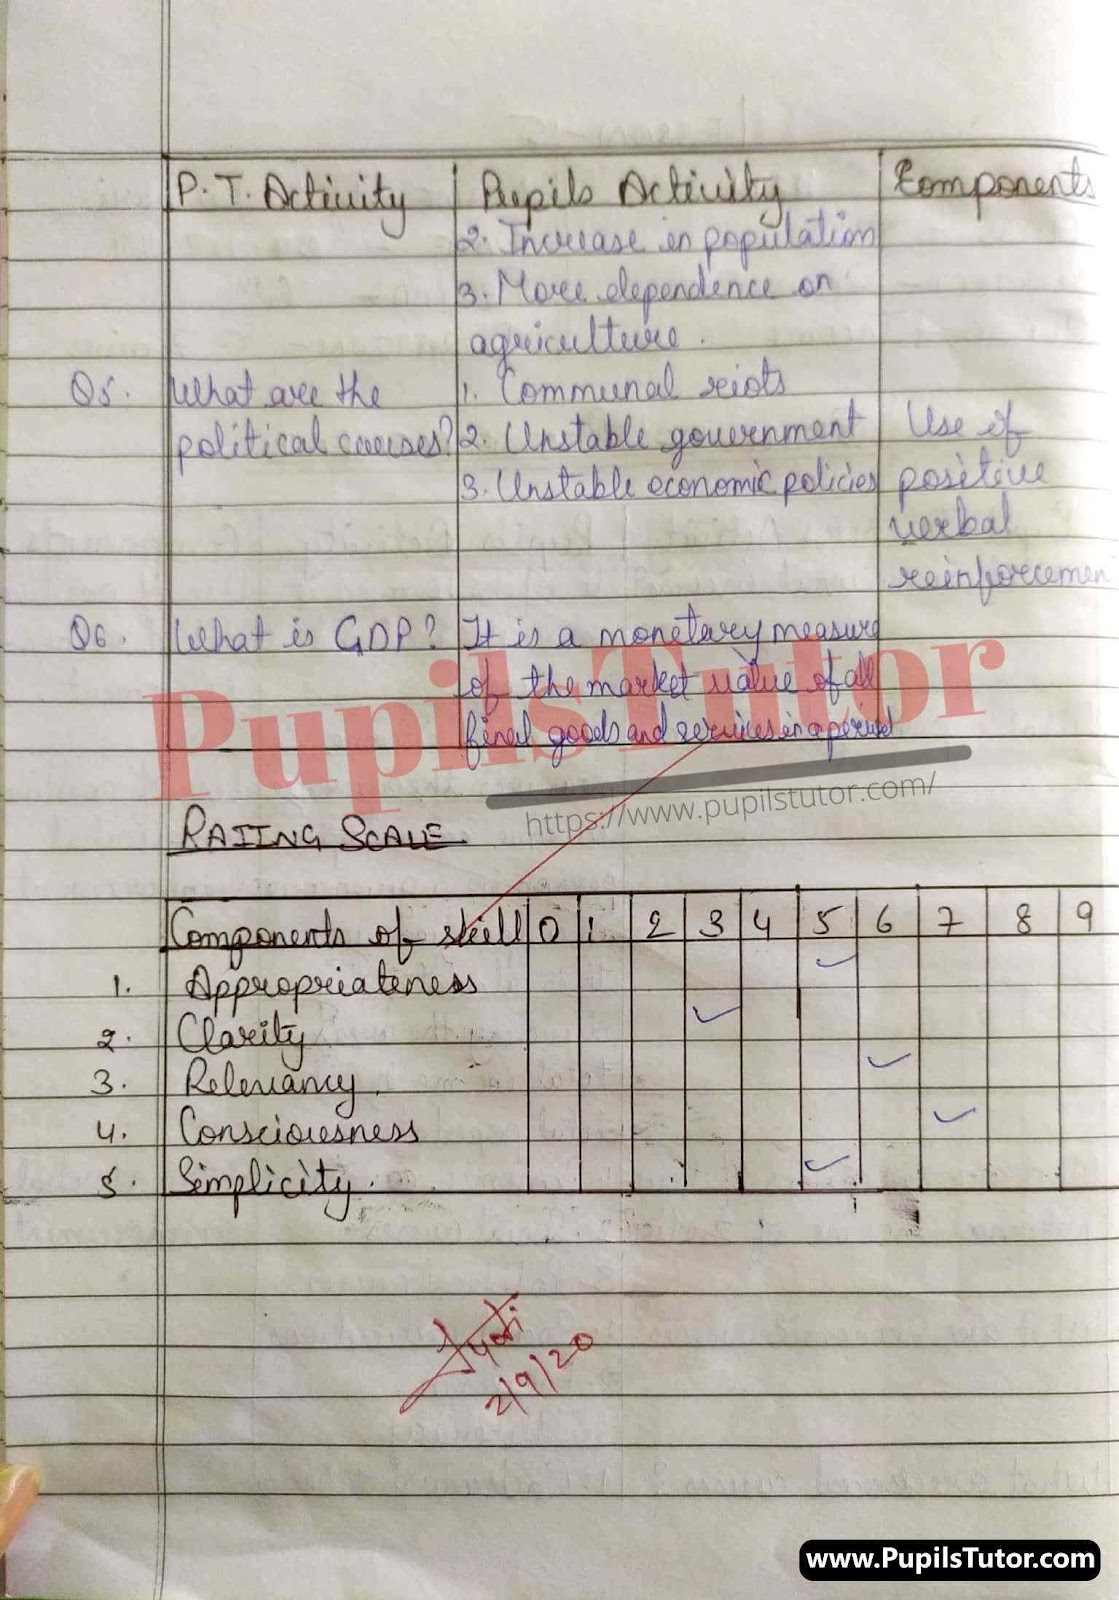 P.T. Activity Pupils Activity Components
2. Increase in population
3. More dependence on
agriculture.
Q5. What are the 1. Communal riots
political causes? 2. Unstable government Use of
3. Unstable economic policies positive
verbal
reinforcemen
Q6. What is GDP? It is a monetary measure
of the market value of all
final goods and services in a period
PupilsTutor
https://www.pupilstutor.com/
RATING SCALE
Components of skill 0 1 2 3 4 5 6 7 8 9
1. Appropriateness ✓
2. Clarity ✓
3. Relevancy. ✓
4. Consciousness ✓
5. Simplicity. ✓
Jyoti
2/9/20
www.PupilsTutor.com